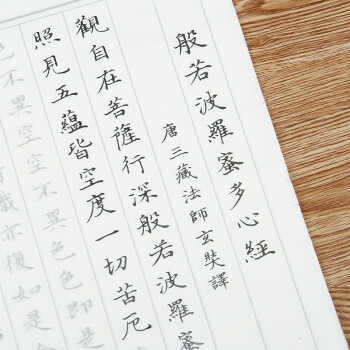 般若波羅蜜多心經
唐三藏法師玄奘譯
觀自在菩薩行深般若波羅蜜
照見五蘊皆空度一切苦厄
色不異空空不異色色即是
識亦復如是